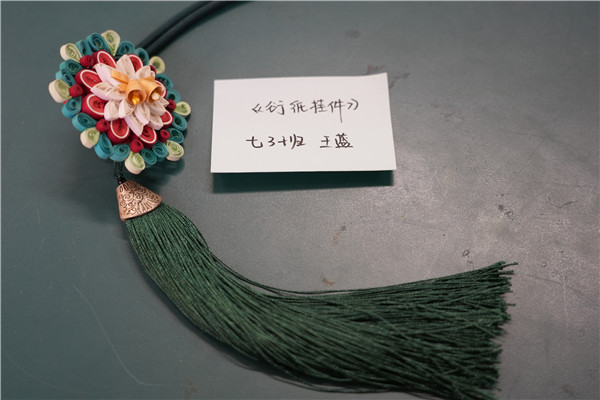 《衍纸挂件》
七3班 王蓝